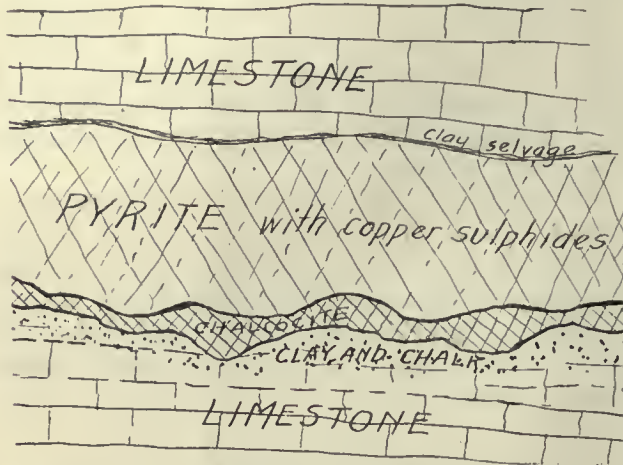 LIMESTONE
clay selvage
PYRITE with copper sulphides
CHALCOCITE
CLAY AND CHALK
LIMESTONE